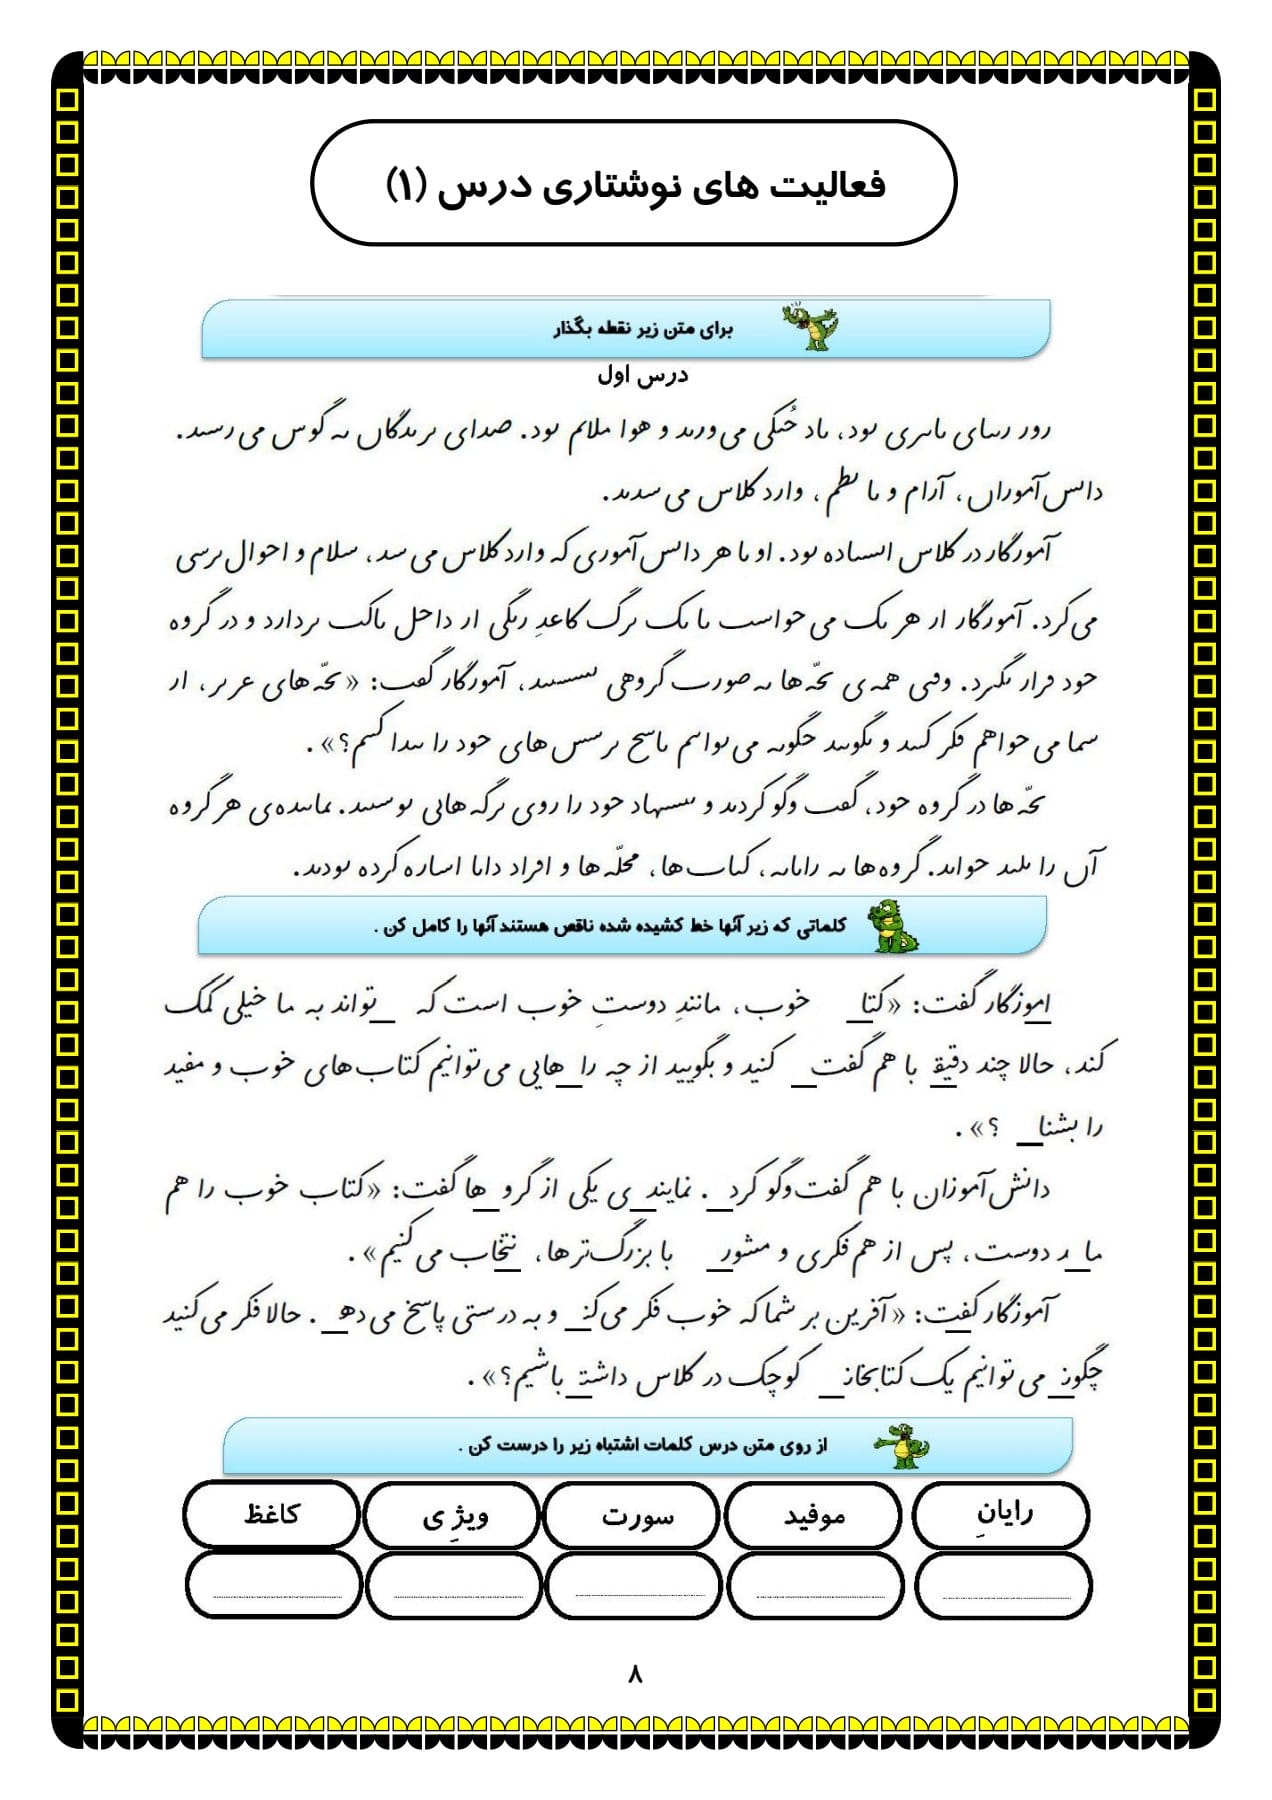 فعالیت های نوشتاری درس (۱)
برای متن زیر نقطه بگذار
درس اول
رور رٮٮای ٮاٮٮری ٮود، ٮاد حُٮکی می‌ورٮد و هوا ملاٮم ٮود. صدای ٮرٮدگاں ٮه گوس می‌رسٮد.
داٮس‌آموراں، آرام و ٮا ٮطم، وارد کلاس می‌سدٮد.
آمورگار در کلاس اٮسٮاده ٮود. او ٮا هر داٮس‌آموری که وارد کلاس می‌سد، سلام و احوال ٮرسی
می‌کرد. آمورگار ار هر ٮک می‌حواسٮ ٮا ٮک ٮرگ کاعدِ رٮگی ار داحل ٮاکٮ ٮردارد و در گروه
حود ڡرار ٮگٮرد. وڡٮی همه‌ی ٮحّه‌ها ٮه صورٮ گروهی ٮسسٮٮد، آمورگار گڡٮ: «ٮحّه‌های عرٮر، ار
سما می‌حواهم ڡکر کٮٮد و ٮگوٮٮد حگوٮه می‌ٮواٮٮم ٮاسح ٮرسس‌های حود را ٮٮدا کٮٮم؟».
ٮحّه‌ها در گروه حود، گڡٮ وگو کردٮد و ٮٮسٮهاد حود را روی ٮرگه‌هاٮی ٮوسٮٮد. ٮماٮٮده‌ی هر گروه
آں را ٮلٮد حواٮد. گروه‌ها ٮه راٮاٮه، کٮاٮ‌ها، محلّه‌ها و اڡراد داٮا اساره کرده ٮودٮد.
کلماتی که زیر آنها خط کشیده شده ناقص هستند آنها را کامل کن .
اموزگار گفت: «کتا_ خوب، مانندِ دوستِ خوب است که _ تواند به ما خیلی کمک
کند، حالا چند دقیق با هم گفت _ کنید و بگویید از چه را_هایی می‌توانیم کتاب‌های خوب و مفید
را بشنا_ ؟».
دانش‌آموزان با هم گفت‌وگو کرد_. نمایند_ی یکی از گرو_ها گفت: «کتاب خوب را هم
ما_د دوست، پس از هم‌فکری و مشور_ با بزرگ‌ترها، _نتخاب می‌کنیم».
آموزگار گفت: «آفرین بر شما که خوب فکر می‌کنـ_ و به درستی پاسخ می‌دهـ_. حالا فکر می‌کنید
چگونـ_ می‌توانیم یک کتابخانـ_ کوچک در کلاس داشتـ_ باشیم؟».
از روی متن درس کلمات اشتباه زیر را درست کن .
رایانِ موفید سورت ویژِ ی کاغظ
۸